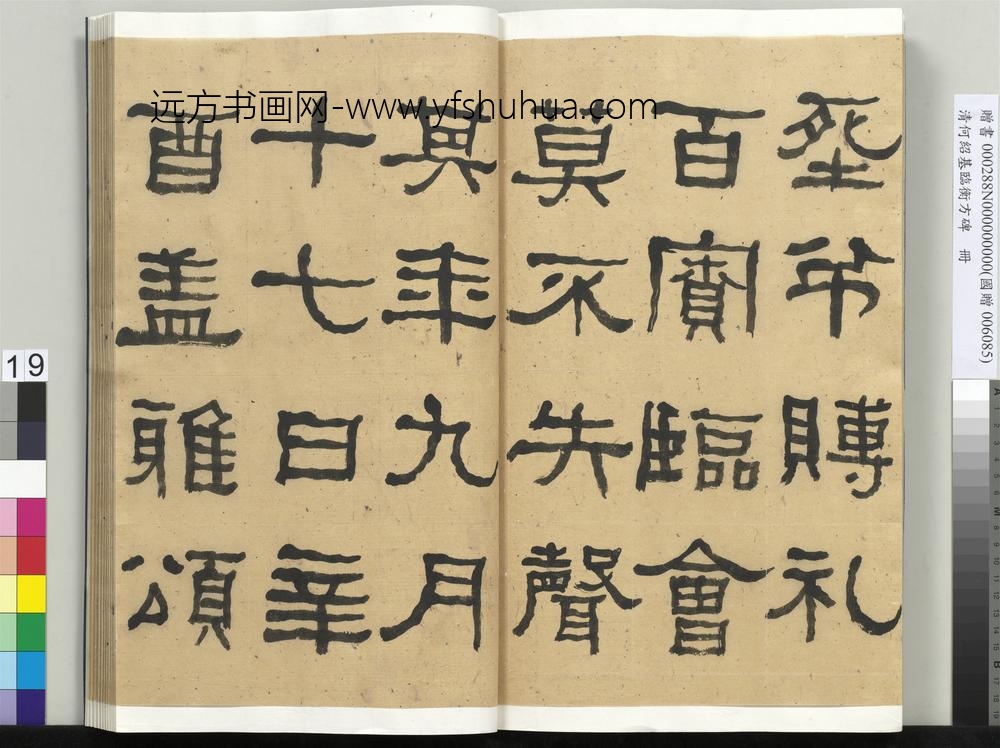 远方书画网-www.yfshuhua.com
垩弔賻礼
百寮臨會
莫不失聲
其年九月
十七日辛
酉盖雅頌
贈書 000288N000000000(國贈 006085)
清何紹基臨衡方碑 冊
19